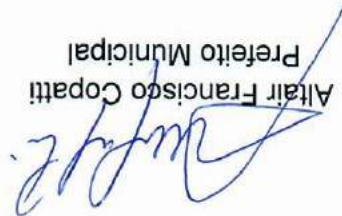 Altair Francisco Copatti
Prefeito Municipal